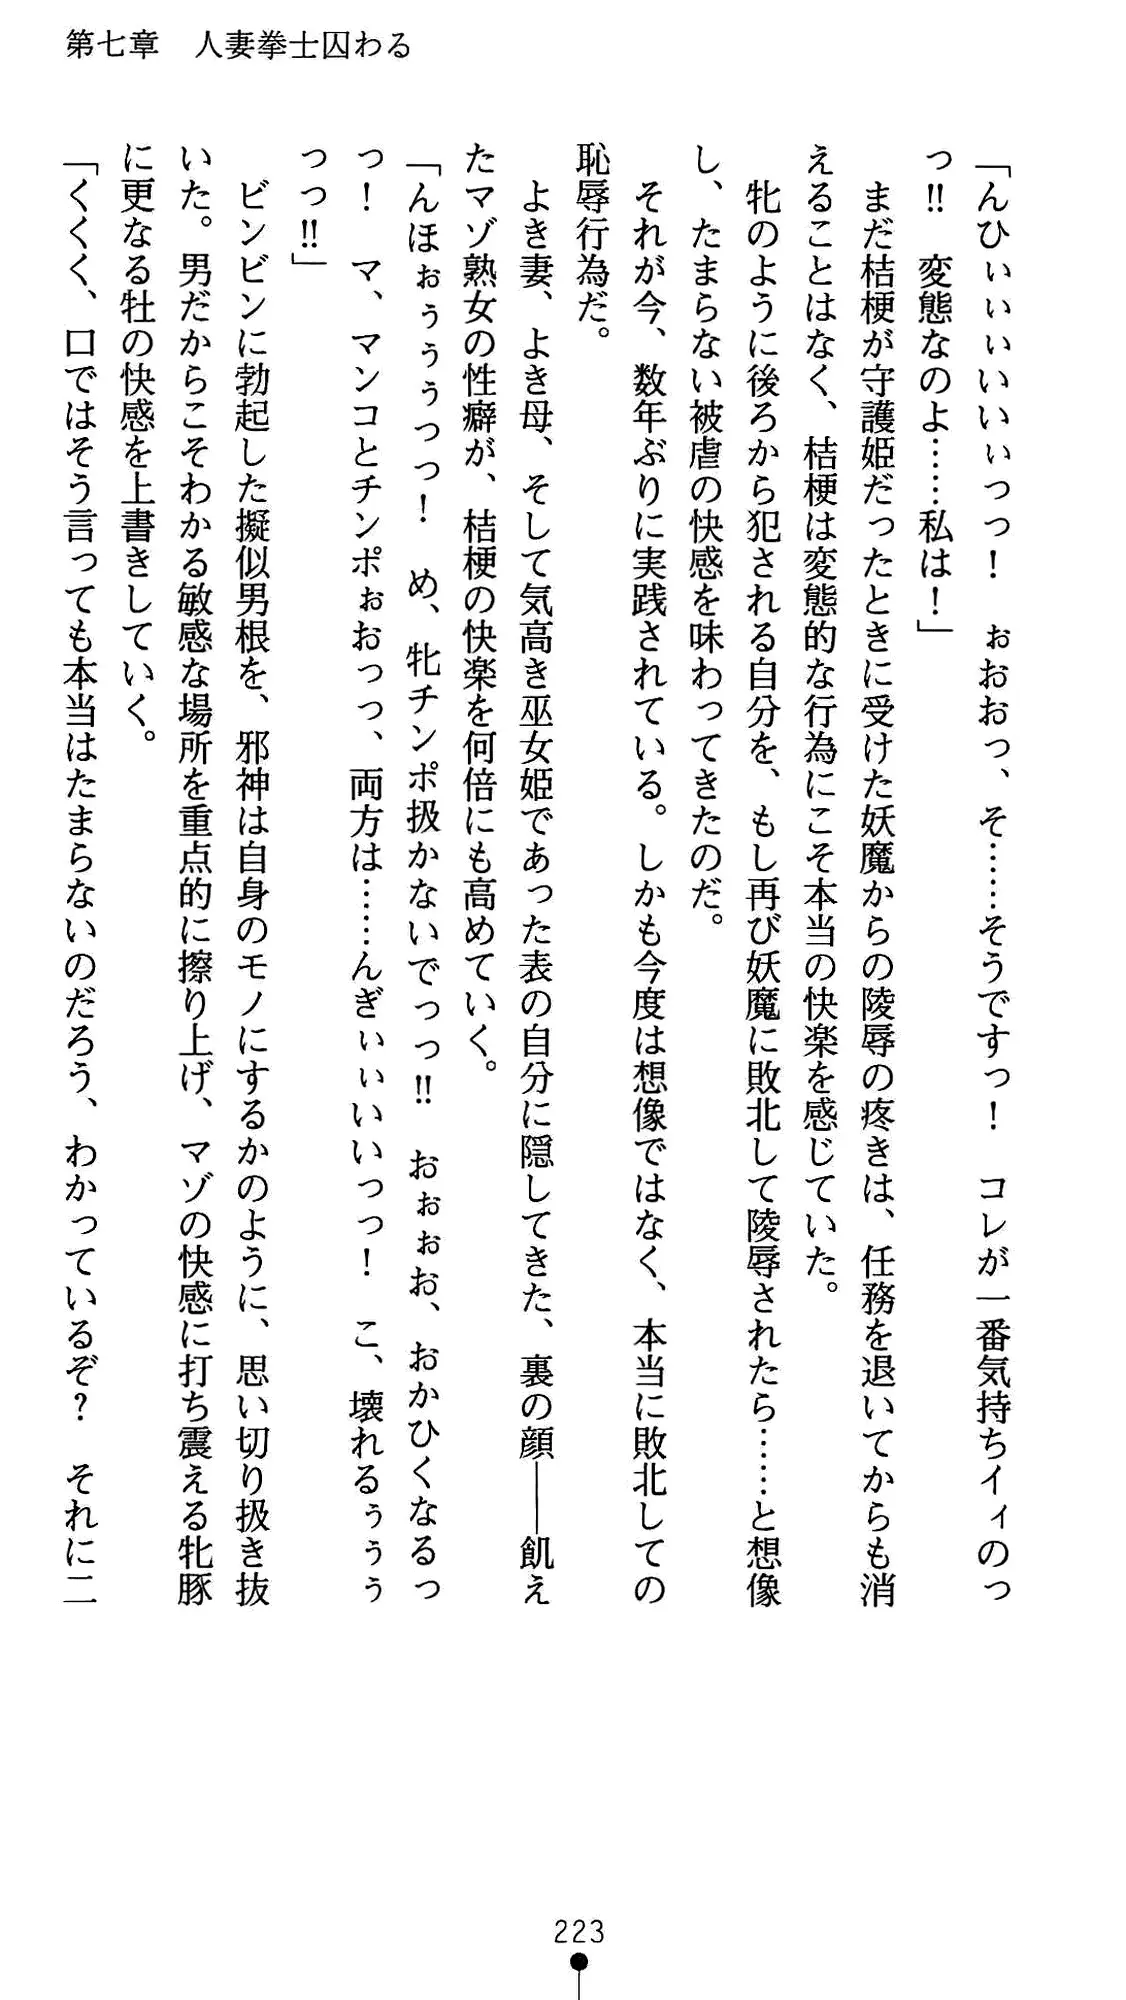 第七章　人妻拳士囚わる
「んひぃぃぃいいぃっっ！　ぉおおっ、そ……そうですっ！　コレが一番気持ちイィのっ
っ‼　変態なのよ……私は！」
　まだ桔梗が守護姫だったときに受けた妖魔からの陵辱の疼きは、任務を退いてからも消
えることはなく、桔梗は変態的な行為にこそ本当の快楽を感じていた。
　牝のように後ろから犯される自分を、もし再び妖魔に敗北して陵辱されたら……と想像
し、たまらない被虐の快感を味わってきたのだ。
　それが今、数年ぶりに実践されている。しかも今度は想像ではなく、本当に敗北しての
恥辱行為だ。
　よき妻、よき母、そして気高き巫女姫であった表の自分に隠してきた、裏の顔――飢え
たマゾ熟女の性癖が、桔梗の快楽を何倍にも高めていく。
「んほぉぅぅぅっっ！　め、牝チンポ扱かないでっっ‼　おぉぉお、おかひくなるっ
っ！　マ、マンコとチンポぉおっっ、両方は……んぎぃぃいいっっ！　こ、壊れるぅぅぅ
っっ‼」
　ビンビンに勃起した擬似男根を、邪神は自身のモノにするかのように、思い切り扱き抜
いた。男だからこそわかる敏感な場所を重点的に擦り上げ、マゾの快感に打ち震える牝豚
に更なる牡の快感を上書きしていく。
「くくく、口ではそう言っても本当はたまらないのだろう、わかっているぞ？　それに二
223